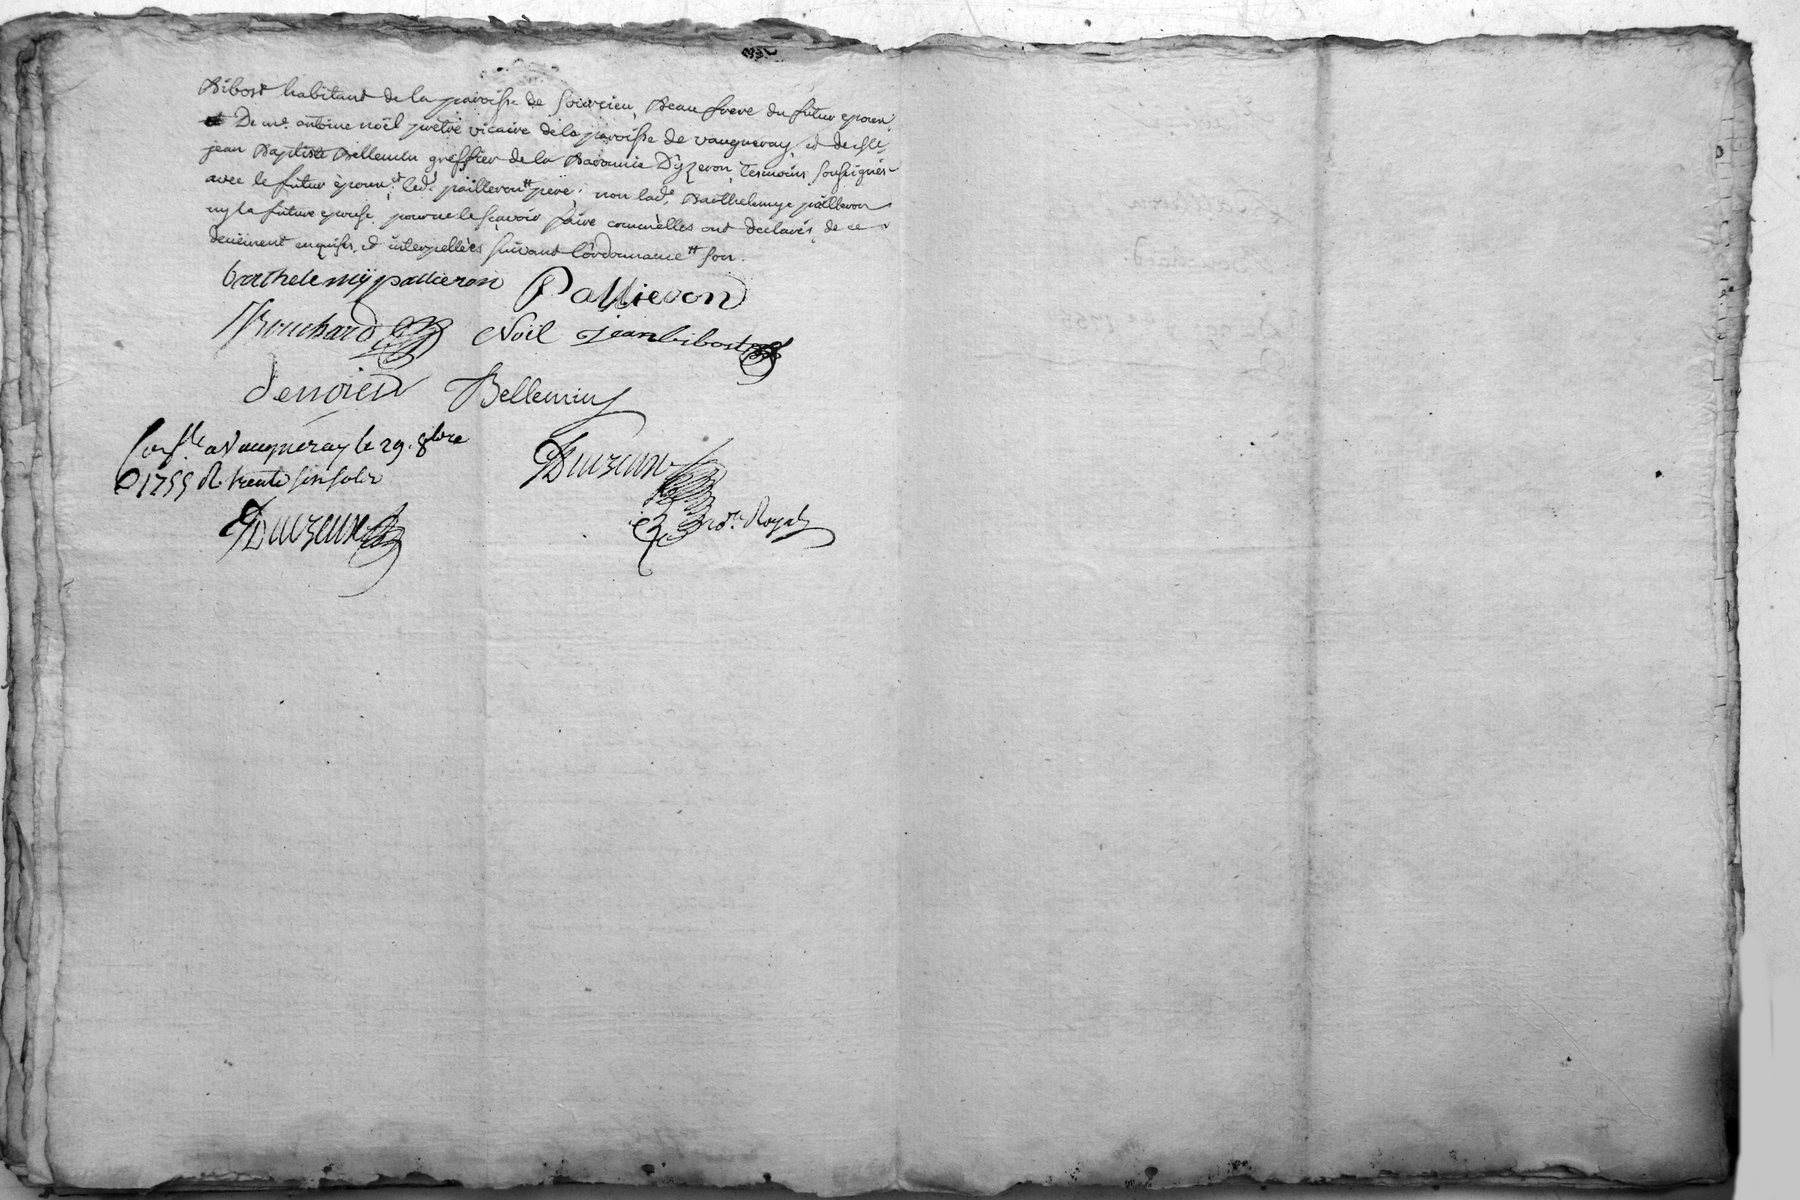 Bibost habitant de la paroisse de Soucieu, Beau frere du futur epoux,
et De mre. antoine noël pretre vicaire de la paroisse de vaugneray, et de
jean Baptiste Bellemin greffier de la Baronnie D'yzeron, temoins soussignés
avec le futur époux, et led. pailleron pere, non lad. Barthelemye pailleron
ny la future epouse, pour ne le sçavoir faire comme elles ont declarés, de ce
deuëment enquises, et interpellées suivant l'ordonnance
barthelemÿ pallieron Pallieron
Bouchard Noël Jean bibost
Bellemin
a Vaugneray le 29. 8bre
1755 R. trente six sols
Duizeux
Duizeux
nore. Royal